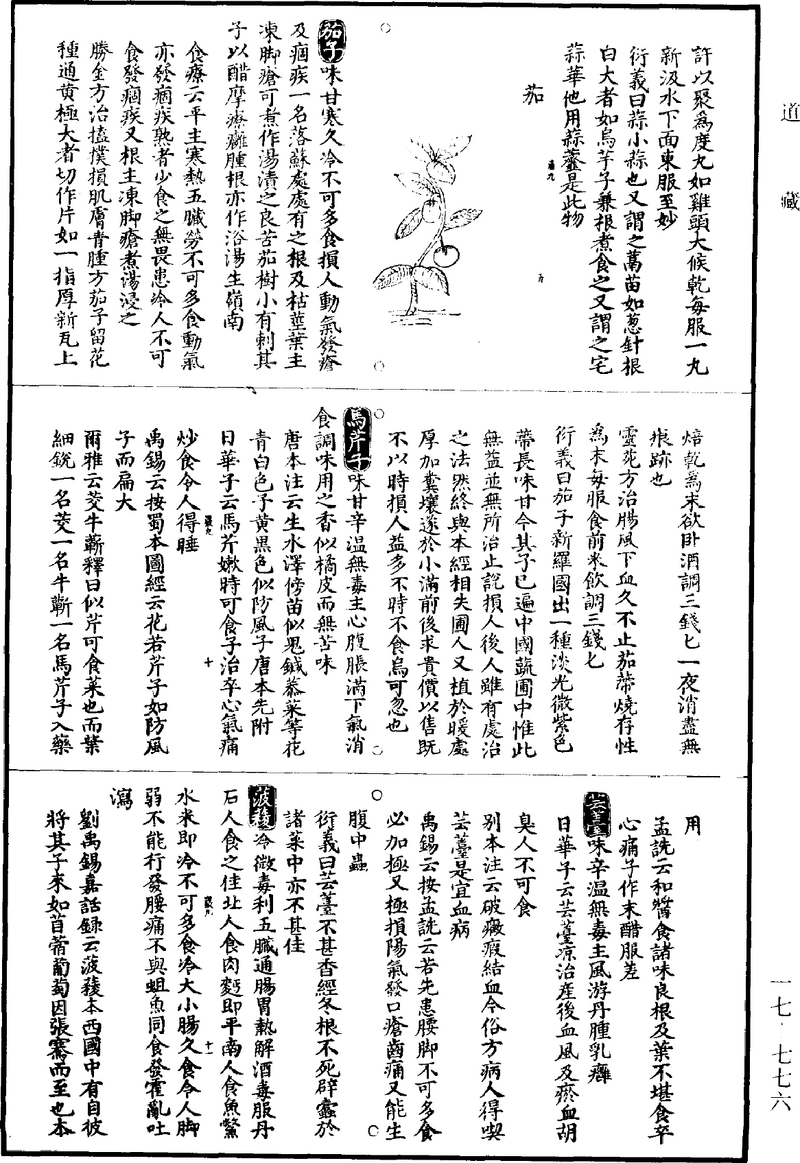 道藏
許以聚為度丸如雞頭大候乾每服一丸
新汲水下面東服至妙
衍義曰蒜小蒜也又謂之蒚苗如葱針根
白大者如烏芋子兼根煮食之又謂之宅
蒜華他用蒜虀是此物
茄
茄子味甘寒久冷不可多食損人動氣發瘡
及痼疾一名落蘇處處有之根及枯莖葉主
凍脚瘡可煮作湯漬之良苦茄樹小有刺其
子以醋摩療癰腫根亦作浴湯生嶺南
食療云平主寒熱五臟勞不可多食動氣
亦發痼疾熟者少食之無畏患冷人不可
食發痼疾又根主凍脚瘡煮湯浸之
勝金方治搕撲損肌膚青腫方茄子留花
種通黄極大者切作片如一指厚新瓦上
焙乾為末欲卧酒調三錢匕一夜消盡無
痕跡也
靈苑方治腸風下血久不止茄蔕燒存性
為末每服食前米飲調三錢匕
衍義曰茄子新羅國出一種淡光微紫色
蔕長味甘今其子已遍中國蔬圃中惟此
無益並無所治止說損人後人雖有處治
之法然終與本經相失圃人又植於暖處
厚加糞壤遂於小滿前後求貴價以售既
不以時損人益多不時不食烏可忽也
馬芹子味甘辛温無毒主心腹脹滿下氣消
食調味用之香似橘皮而無苦味
唐本注云生水澤傍苗似鬼鍼菾菜等花
青白色子黄黑色似防風子唐本先附
日華子云馬芹嫩時可食子治卒心氣痛
炒食令人得睡
禹錫云按蜀本圖經云花若芹子如防風
子而扁大
爾雅云茭牛蘄釋曰似芹可食菜也而葉
細銳一名茭一名牛蘄一名馬芹子入藥
用
孟詵云和醬食諸味良根及葉不堪食卒
心痛子作末醋服差
芸薹味辛温無毒主風游丹腫乳癰
日華子云芸薹凉治產後血風及瘀血胡
臭人不可食
别本注云破癥瘕結血今俗方病人得喫
芸薹是宜血病
禹錫云按孟詵云若先患腰脚不可多食
必加極又極損陽氣發口瘡齒痛又能生
腹中蟲
衍義曰芸薹不甚香經冬根不死辟蠹於
諸菜中亦不甚佳
菠薐冷微毒利五臟通腸胃熱解酒毒服丹
石人食之佳北人食肉麵即平南人食魚鱉
水米即冷不可多食冷大小腸久食令人脚
弱不能行發腰痛不與䱇魚同食發霍亂吐
瀉
劉禹錫嘉話録云菠薐本西國中有自彼
將其子來如苜蓿葡萄因張騫而至也本
一七·七七六